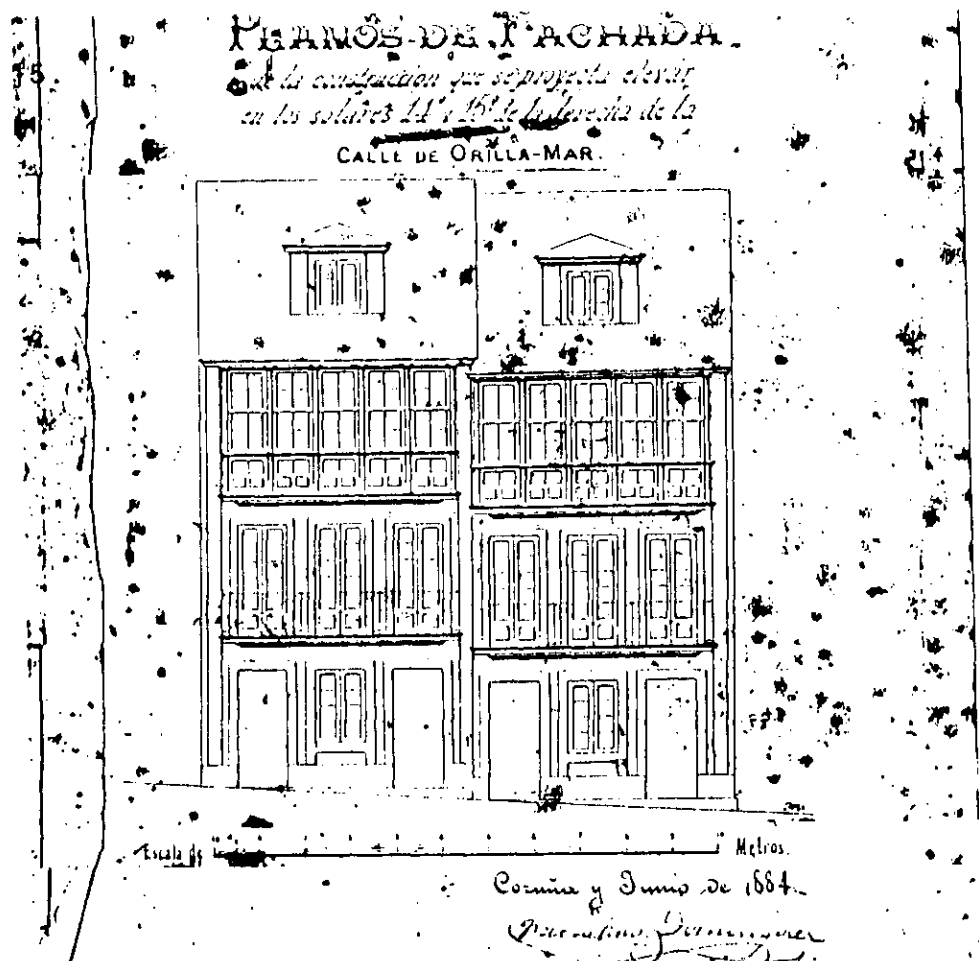 PLANOS DE FACHADA.
de la construccion que se proyecta elevar
en los solares 14 y 15 de la derecha de la
CALLE DE ORILLA-MAR.
Escala de Metros.
Coruña y Junio de 1884.